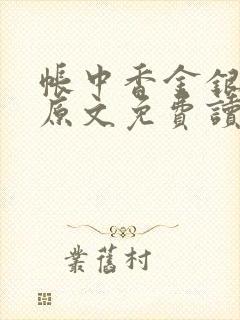 帳中香金銀
原文免費讀
業舊村